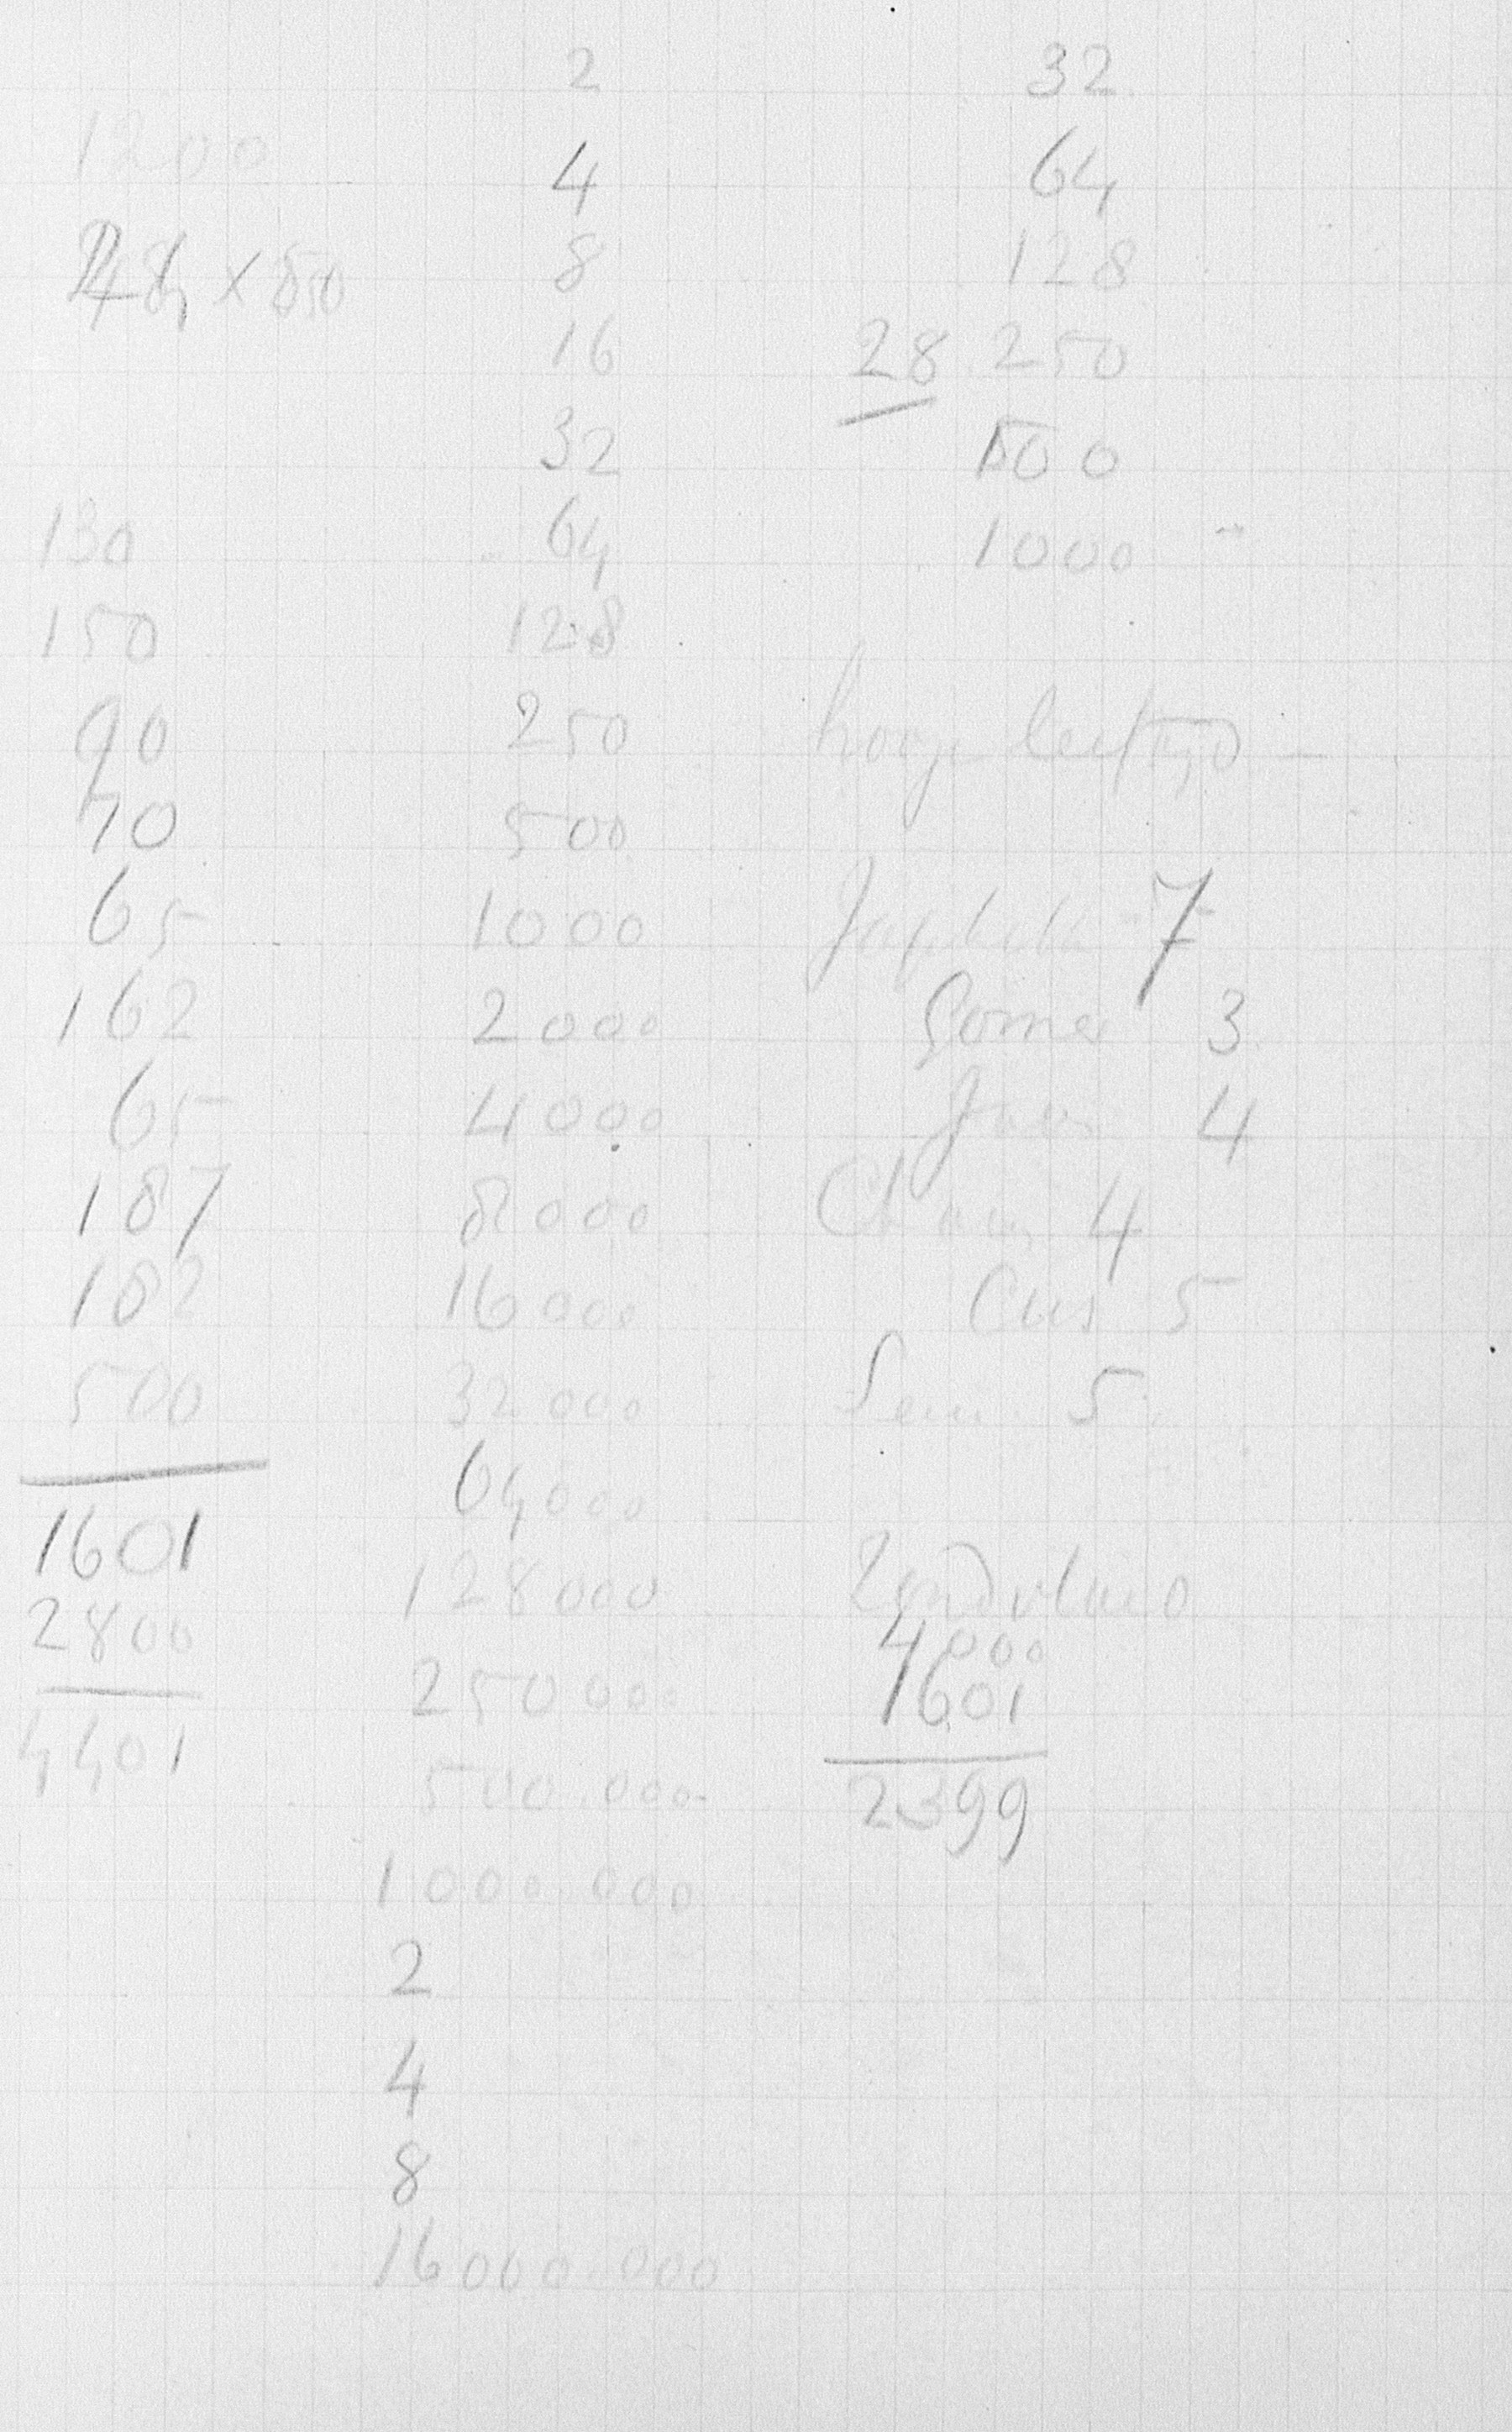 1200
× 50
130
150
90
70
65
162
65
187
182
500
1601
2800
4401
2
4
8
16
32
64
128
250
500
1000
2000
4000
8000
16000
32000
64000
128000
250000
500.000
1000.000
2
4
8
16000.000
32
64
128
28 250
500
1000
hooge leeftijd –
Japheth 7
Gomer 3
Javan 4
Cham 4
Cus 5
Sem 5
Zondvloed
4000
1601
2399